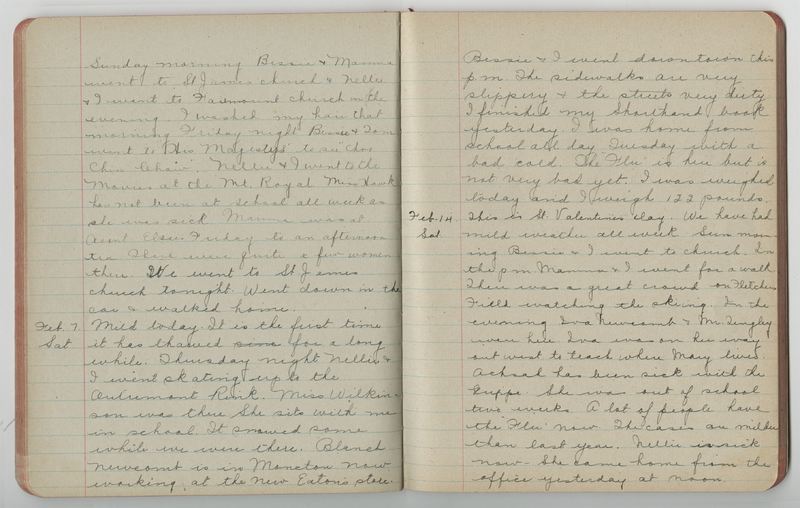 Sunday morning Bessie & Mamma
went to St James church & Nellie
& I went to Fairmount church in the
evening. I washed my hair that
morning Friday night Bessie & Tom
went to "His Majestys" to see "Chu
Chin Chow". Nellie & I went to the
Movies at the Mt. Royal Miss Hawk
has not been at school all week as
she was sick Mamma was at
Aunt Elsie Friday to an afternoon
tea There were quite a few women
there. We went to St James
church tonight. Went down in the
car & walked home.
Feb. 7. Mild today. It is the first time
Sat it has thawed since for a long
while. Thursday night Nellie &
I went skating up to the
Outremont Rink. Miss Wilkin-
son was there She sits with me
in school. It snowed some
while we were there. Blanch
Newcomb is in Moncton now
working at the New Eaton's store.
Bessie & I went downtown this
p.m. The sidewalks are very
slippery & the streets very dirty
I finished my Shorthand book
yesterday. I was home from
school all day Tuesday with a
bad cold. The "Flu" is here but is
not very bad yet. I was weighed
today and I weigh 122 pounds.
Feb. 14. This is St. Valentines day. We have had
Sat. mild weather all week Sun morn-
ing Bessie & I went to church. In
the p.m Mamma & I went for a walk
There was a great crowd on Fletchers
Field watching the skiing. In the
evening Iva Newcomb & Mr. Tingley
were here Iva was on her way
out west to teach where Mary lives.
Achsah has been sick with the
Grippe She was out of school
two weeks A lot of people have
the "Flu" now The cases are milder
than last year. Nellie is sick
now- She came home from the
office yesterday at noon.